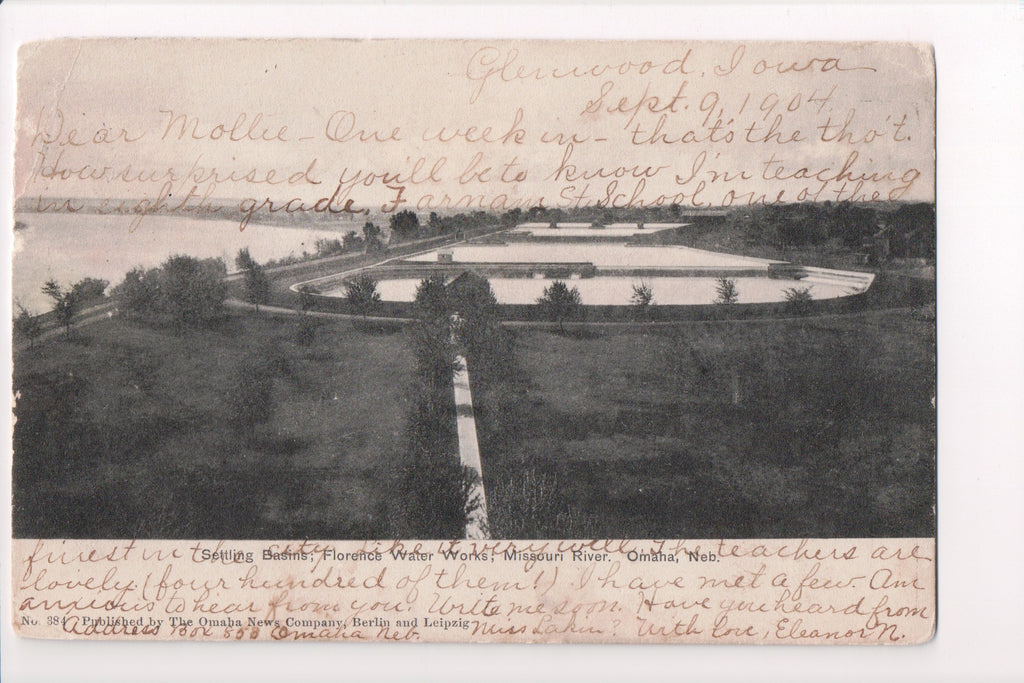 Glenwood, Iowa
Sept. 9, 1904.
Dear Mollie - One week in - that's the tho't.
How surprised you'll be to know I'm teaching
in eighth grade, Farnam St. School, one of the
finest in the city. Like it very well. The teachers are
Settling Basins, Florence Water Works, Missouri River. Omaha, Neb.
lovely (four hundred of them!). I have met a few. Am
anxious to hear from you. Write me soon. Have you heard from
No. 384 Published by The Omaha News Company, Berlin and Leipzig
Address Box Omaha Neb. Miss Lakin? With love, Eleanor N.